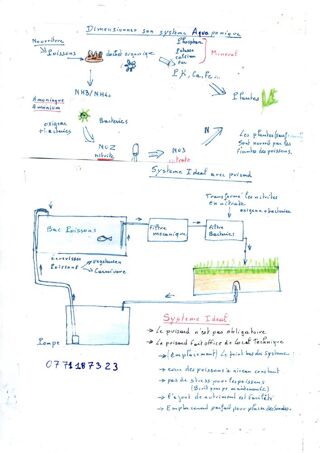 Dimensionner son système Aquaponique
Nourriture
Poissons
déchet organique
Phosphore
Potasse
calcium
Fer
Minerat
P, K, Ca, Fe...
NH3/NH4+
Plantes
Amoniaque
Amonium
oxigene
+ bacteries
Bacteries
NO2
nitrite
NO3
nitrate
N
Les plantes
sont nourrit par les
fientes des poissons.
Systeme Ideal avec puisard
Transforme les nitrites
en nitrate.
oxigene + bacteries
Bac Poissons
Filtre
mecanique
filtre
Bacteries
Poissons
vegetarien
Carnivore
Pompe
0771187323
Systeme Ideal:
→ Le puisard n'est pas obligatoire
→ Le puisard fait office de local Technique
→ (emplacement) Le point bas du systeme:
→ eau des poissons a niveau constant
→ pas de stress pour les poissons
→ l'ajout de nutriment est facilité
→ Emplacement parfait pour